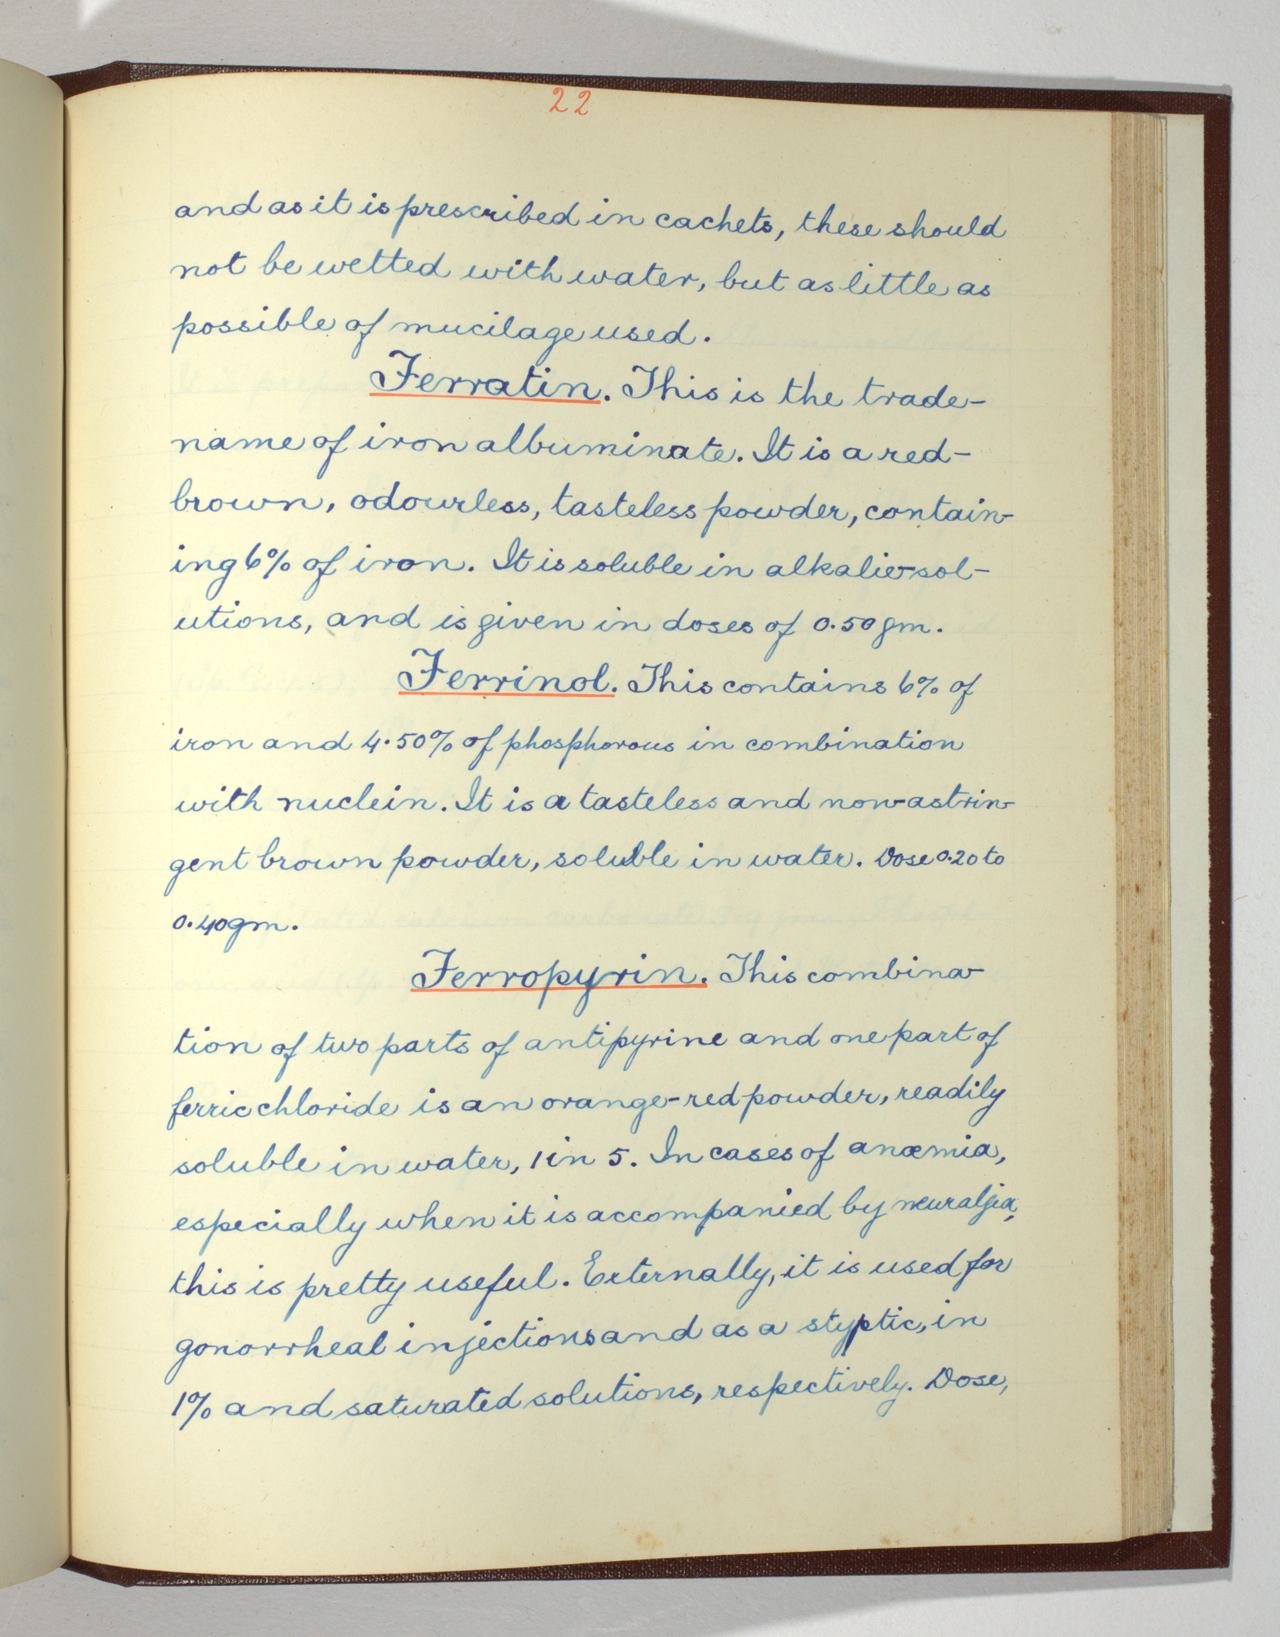 22
and as it is prescribed in cachets, these should
not be wetted with water, but as little as
possible of mucilage used.
Ferratin. This is the trade-
name of iron albuminate. It is a red-
brown, odourless, tasteless powder, contain-
ing 6% of iron. It is soluble in alkalie sol-
utions, and is given in doses of 0.50 gm.
Ferrinol. This contains 6% of
iron and 4.50% of phosphorous in combination
with nuclein. It is a tasteless and non-astrin-
gent brown powder, soluble in water. Dose 0.20 to
0.40 gm.
Ferropyrin. This combina-
tion of two parts of antipyrine and one part of
ferric chloride is an orange-red powder, readily
soluble in water, 1 in 5. In cases of anæmia,
especially when it is accompanied by neuralgia,
this is pretty useful. Externally, it is used for
gonorrheal injections and as a styptic, in
1% and saturated solutions, respectively. Dose,